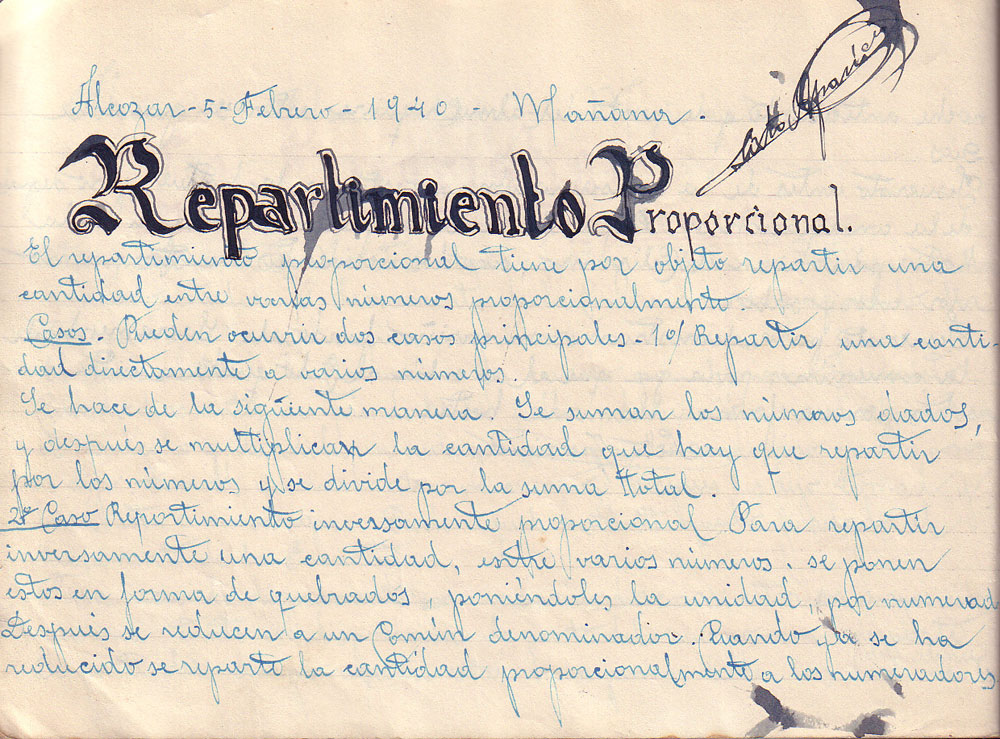 Alcozar - 5 - Febrero - 1940 - Mañana.
Repartimiento Proporcional.
El repartimiento proporcional tiene por objeto repartir una
cantidad entre varias números proporcionalmente.
Casos. Pueden ocurrir dos casos principales - 1º/ Repartir una canti-
dad directamente a varios números.
Se hace de la sigüente manera Se suman los números dados,
y después se multiplican la cantidad que hay que repartir
por los números y se divide por la suma total.
2º Caso Reportimiento inversamente proporcional Para repartir
inversamente una cantidad, entre varios números. se ponen
estos en forma de quebrados, poniéndoles la unidad, por numerad
Después se reducen a un Común denominador. Cuando ya se ha
reducido se reparte la cantidad proporcionalmente a los numeradores